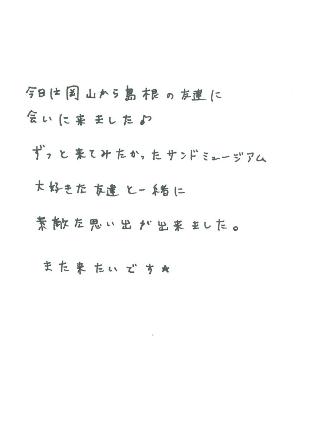 今日は岡山から島根の友達に
会いに来ました♪
ずっと来てみたかったサンドミュージアム
大好きな友達と一緒に
素敵な思い出が出来ました。
また来たいです★